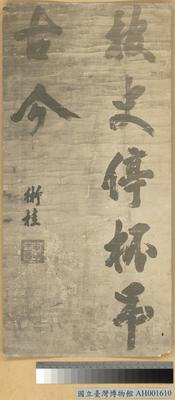 披史停杯弔
古今
衡桂
國立臺灣博物館 AH001610